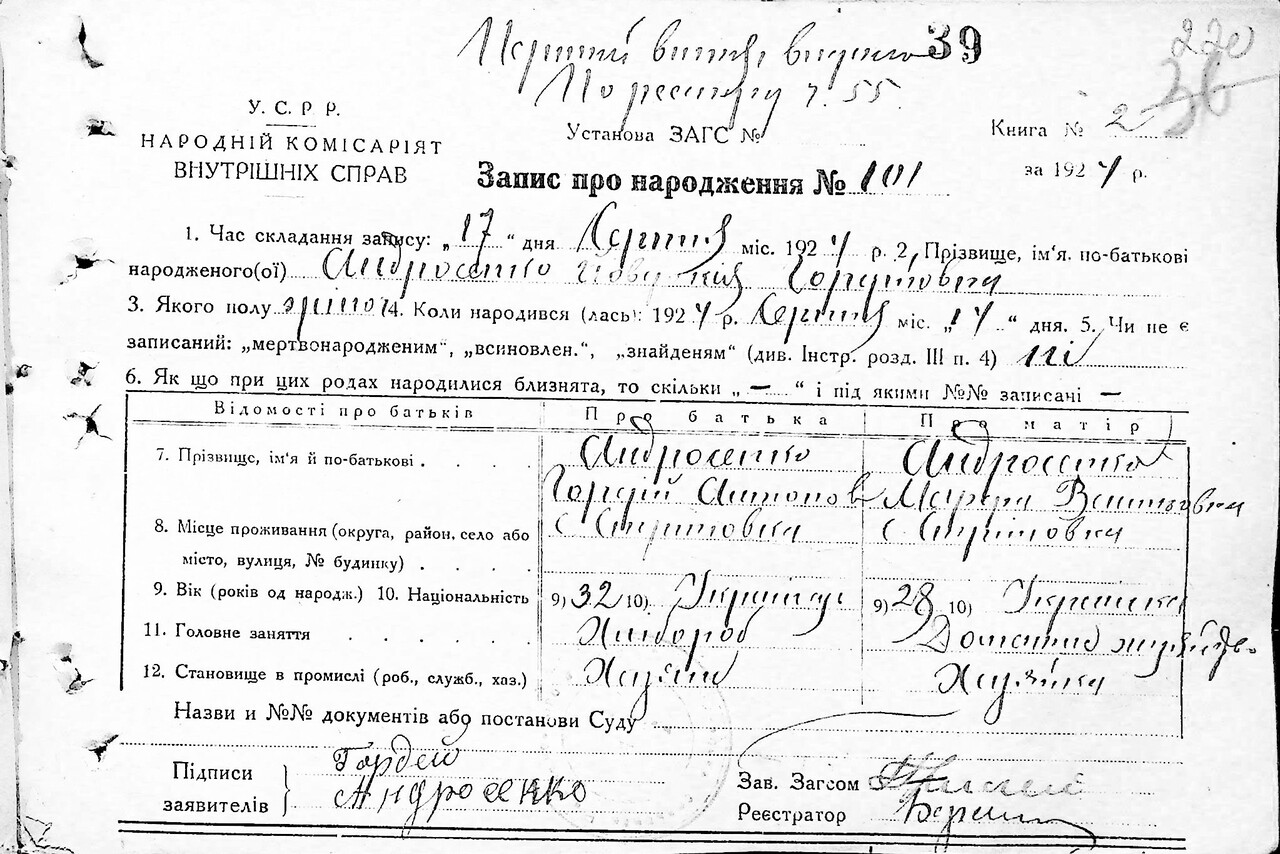 Перший витяг видано 39
По реєстру ч. 55.
220
36
У. С. Р. Р.
НАРОДНІЙ КОМІСАРІЯТ
ВНУТРІШНІХ СПРАВ
Установа ЗАГС №
Книга № 2
Запис про народження № 101
за 1924 р.
1. Час складання запису: „17“ дня Серпня міс. 1924 р. 2, Прізвище, ім'я. по-батькові
народженого(ої) Андросенко Гордіївна
3. Якого полу жіночої 4. Коли народився (лась): 1924 р. Серпня міс. „14“ дня. 5. Чи не є
записаний: „мертвонародженим“, „всиновлен.“, „знайденям“ (див. Інстр. розд. III п. 4) ні
6. Як що при цих родах народилися близнята, то скільки „—“ і під якими №№ записані —
Відомості про батьків Про батька Про матір
7. Прізвище, ім'я й по-батькові . Андросенко Андросенко
Гордій Антонов Марфа
8. Місце проживання (округа, район, село або
місто, вулиця, № будинку) . с с
9. Вік (років од народж.) 10. Національність 9) 32 10) Українець 9) 28 10) Українка
11. Головне заняття Хлібороб Домашнє
12. Становище в промислі (роб., служб., хаз.) Хазяїн Хазяйка
Назви и №№ документів або постанови Суду
Підписи
заявителів
Гордей
Андросенко
Зав. Загсом
Реєстратор